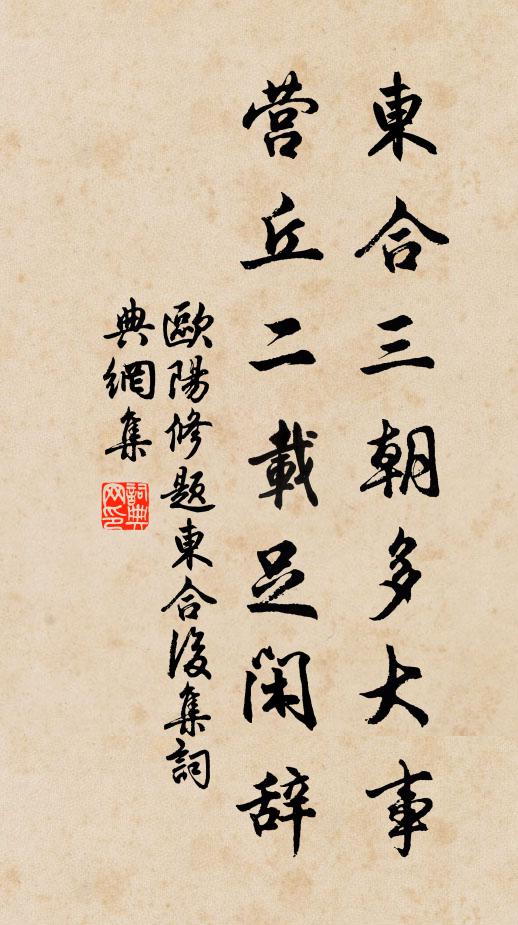 東合三朝多大事
营丘二載足閑辞
歐陽修題東合後集詞
典網集
詞典网印